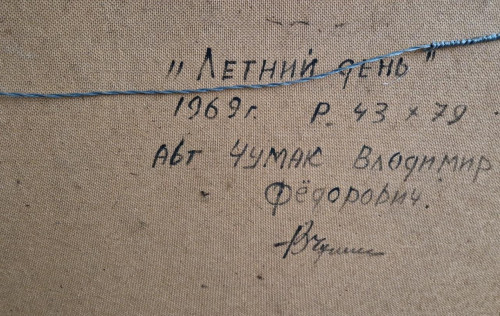 „Летний день"
1969г. Р. 43 × 79
Авт Чумак Владимир
Фёдорович.